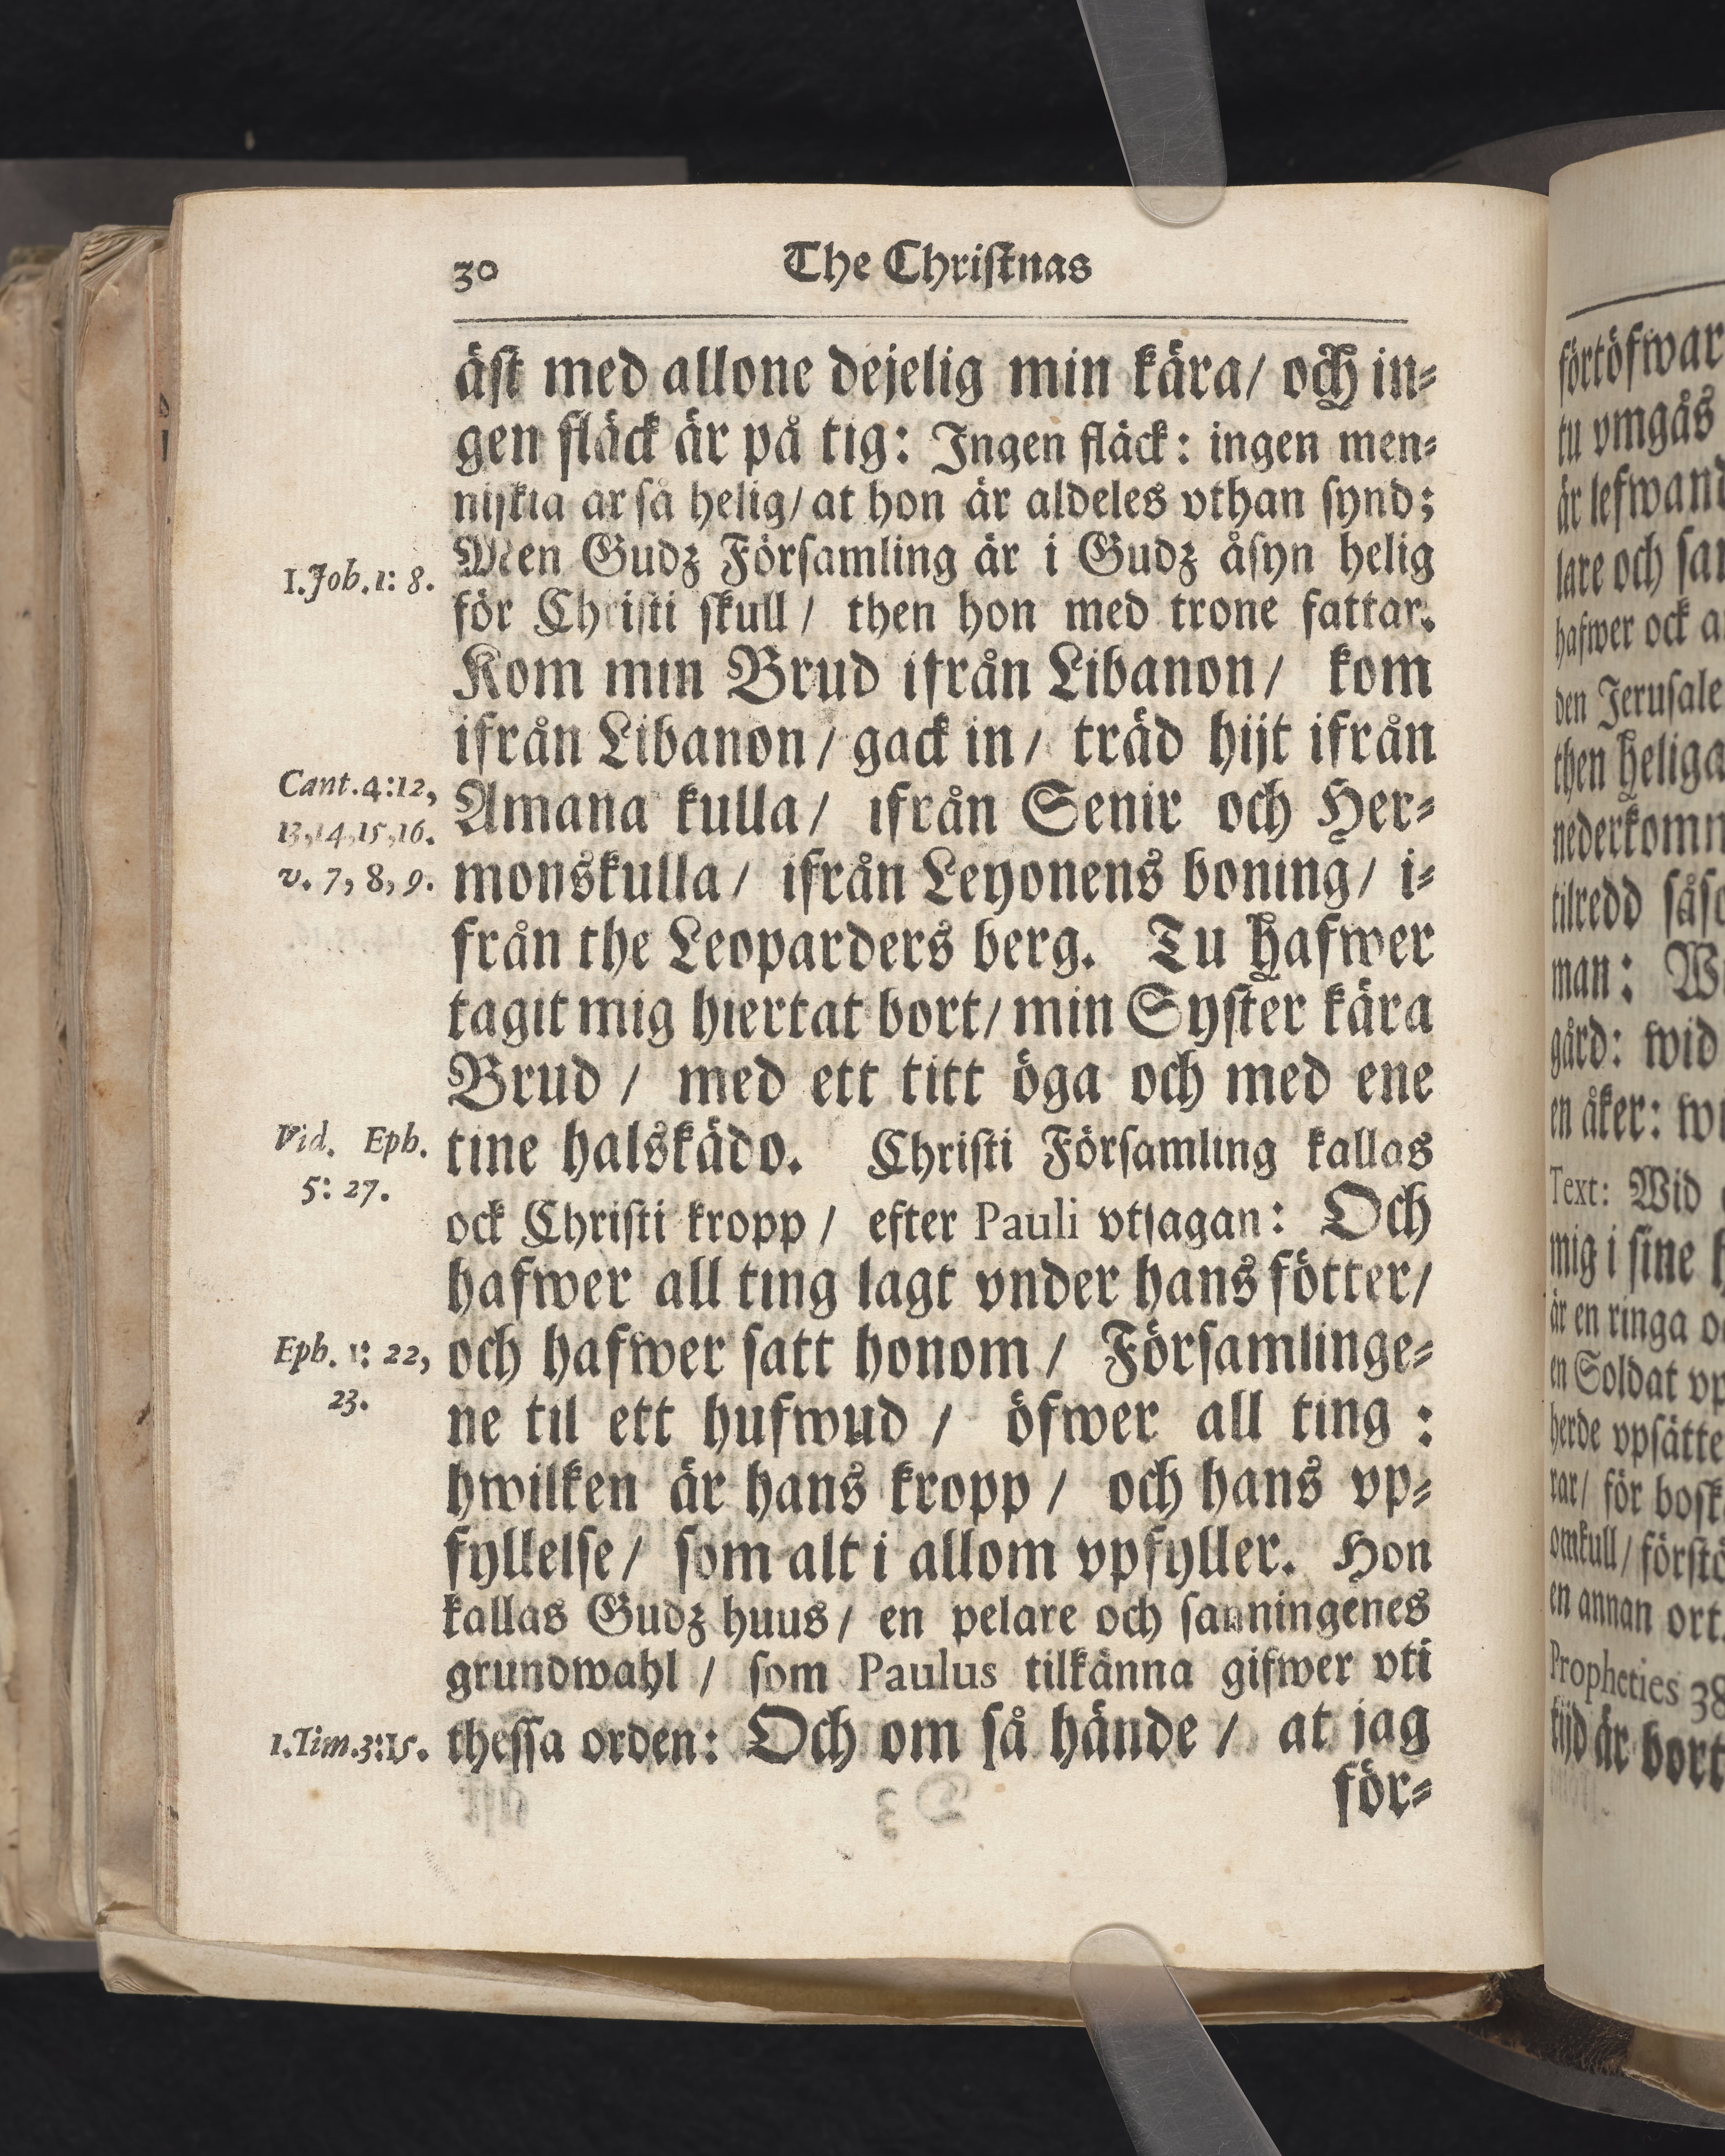 30 The Christnas
äst med allone dejelig min kära/ och in-
gen fläck är på tig: Ingen fläck: ingen men-
niskia är så helig/ at hon är aldeles vthan synd;
Men Gudz Församling är i Gudz åsyn helig
1. Joh. 1: 8.
för Christi skull/ then hon med trone fattar.
Kom min Brud ifrån Libanon/ kom
ifrån Libanon/ gack in/ träd hijt ifrån
Cant. 4:12,
Amana kulla/ ifrån Senir och Her-
13,14,15,16.
monskulla/ ifrån Leyonens boning/ i-
v. 7, 8, 9.
från the Leoparders berg. Tu hafwer
tagit mig hiertat bort/ min Syster kära
Brud/ med ett titt öga och med ene
tine halskädo. Christi Församling kallas
Vid. Eph.
5: 27.
ock Christi kropp/ efter Pauli vtsagan: Och
hafwer all ting lagt vnder hans fötter/
och hafwer satt honom/ Församlinge-
Eph. 1: 22,
23.
ne til ett hufwud/ öfwer all ting:
hwilken är hans kropp/ och hans vp-
fyllelse/ som alt i allom vpfyller. Hon
kallas Gudz huus/ en pelare och sanningenes
grundwahl/ som Paulus tilkänna gifwer vti
thessa orden: Och om så hände/ at jag
1. Tim. 3:15.
för-
förtöfwar
tu vmgås
är lefwand
lare och san
hafwer ock a
den Jerusale
then heliga
nederkomm
tilredd såso
man: Wi
gård: wid
en åker: wi
Text: Wid
mig i sine h
är en ringa o
en Soldat vp
herde vpsätte
rar/ för bosk
omkull/ förstö
en annan ort.
Propheties 38
tijd är bort